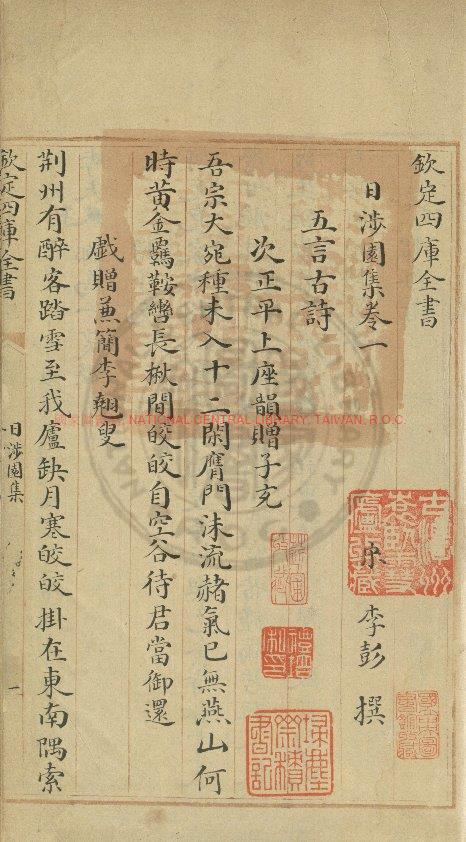 欽定四庫全書
日涉園集卷一
宋 李彭 撰
五言古詩
次正平上座韻贈子充
吾宗大宛種未入十二閑膺門沬流赭氣已無燕山何
時黃金羈鞍轡長楸間皎皎自空谷待君當御還
戯贈兼簡李翹叟
荆州有醉客踏雪至我廬缺月寒皎皎掛在東南隅索
欽定四庫全書
日涉園集
一
NATIONAL CENTRAL LIBRARY, TAIWAN, R.O.C.